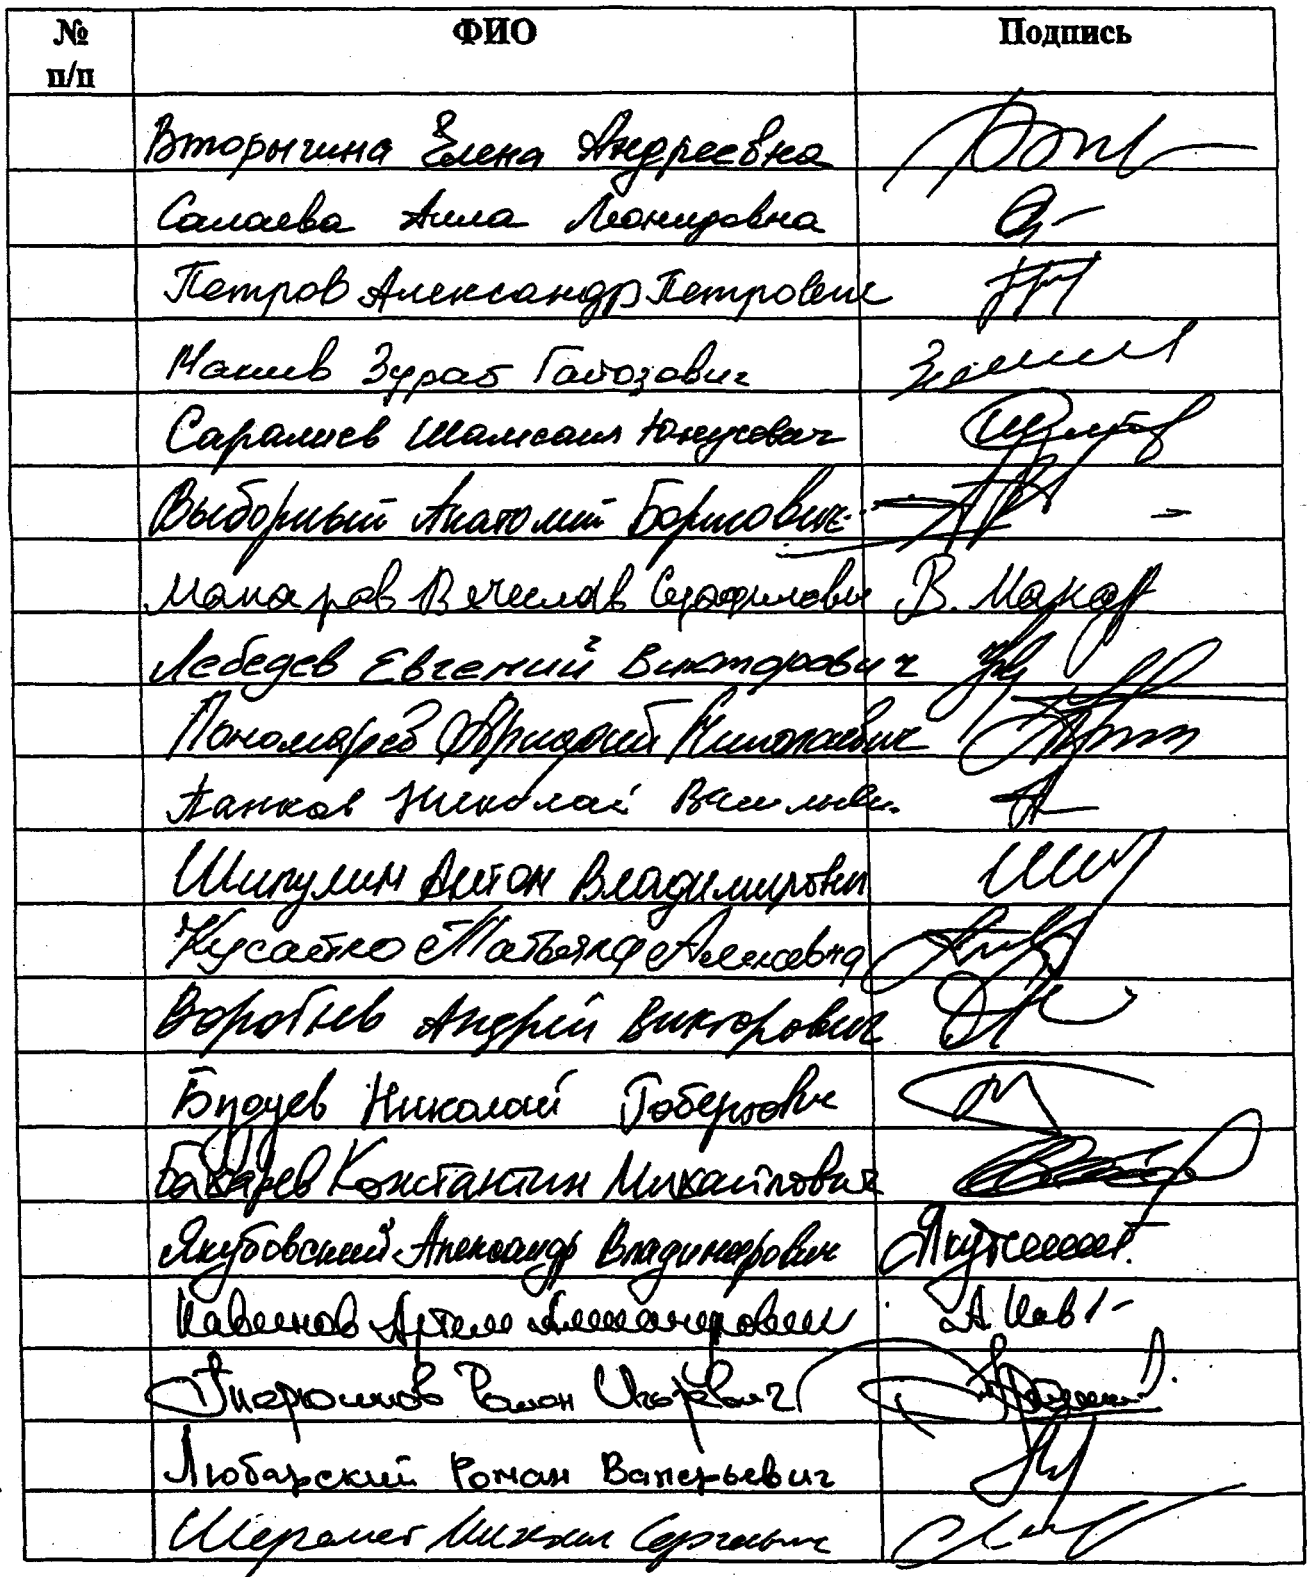 № п/п ФИО Подпись
Вторыгина Елена Андреевна
Салаева Алла Леонидовна
Петров Александр Петрович
Макиев Зураб Гайозович
Саралиев Шамсаил Юнусович
Выборный Анатолий Борисович
Макаров Вячеслав Серафимович В. Макар
Лебедев Евгений Викторович
Пономарёв Аркадий Николаевич
Панков Николай Васильевич
Шипулин Антон Владимирович
Кусайко Татьяна Алексеевна
Воробьев Андрей Викторович
Будуев Николай Робертович
Бахарев Константин Михайлович
Якубовский Александр Владимирович
Кавинов Артём Александрович А. Кав
Романов Игоревич
Любарский Роман Валерьевич
Шеремет Михаил Сергеевич